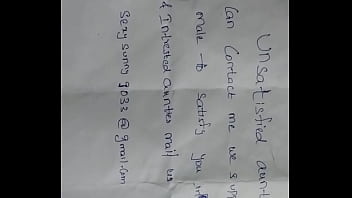 Unsatisfied aunt
Can Contact me we sup
male to satisfy you
& Intrested aunties mail us
Sexy sunny 9033 @ gmail.com